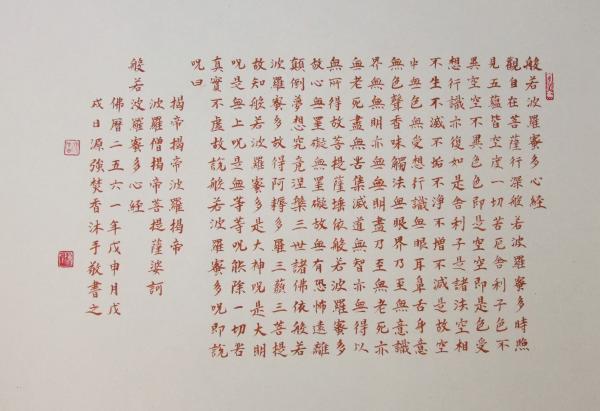 般若波羅蜜多心經
觀自在菩薩行深般若波羅蜜多時照
見五蘊皆空度一切苦厄舍利子色不
異空空不異色色即是空空即是色受
想行識亦復如是舍利子是諸法空相
不生不滅不垢不淨不增不減是故空
中無色無受想行識無眼耳鼻舌身意
無色聲香味觸法無眼界乃至無意識
界無無明亦無無明盡乃至無老死亦
無老死盡無苦集滅道無智亦無得以
無所得故菩提薩埵依般若波羅蜜多
故心無罣礙無罣礙故無有恐怖遠離
顛倒夢想究竟涅槃三世諸佛依般若
波羅蜜多故得阿耨多羅三藐三菩提
故知般若波羅蜜多是大神呪是大明
呪是無上呪是無等等呪能除一切苦
真實不虛故說般若波羅蜜多呪即說
呪曰
揭帝揭帝波羅揭帝
波羅僧揭帝菩提薩婆訶
般若波羅蜜多心經
佛曆二五六一年戊申月戊
戌日源強焚香沐手敬書之